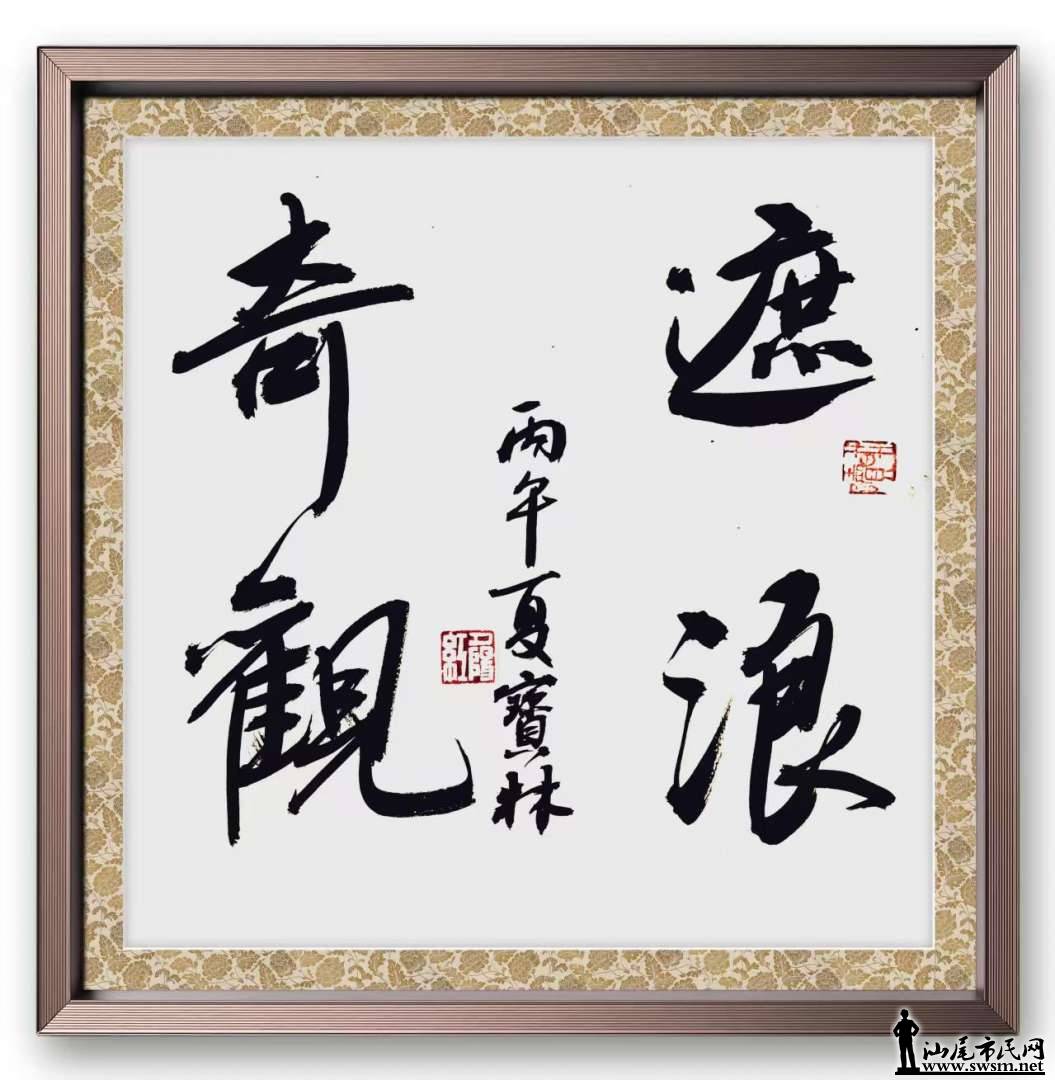 遮浪
奇觀
丙午夏寶林
汕尾市民网
www.swsm.net